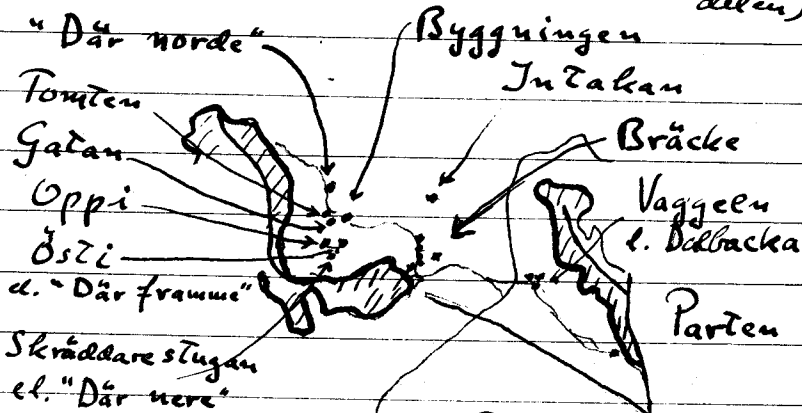 delen)
"Där norde"
Byggningen
Intakan
Tomten
Gatan
Bräcke
Oppi
Vaggeln
l. Dalbacka
Östi
el. "Där framme"
Parten
Skräddarestugan
el. "Där nere"